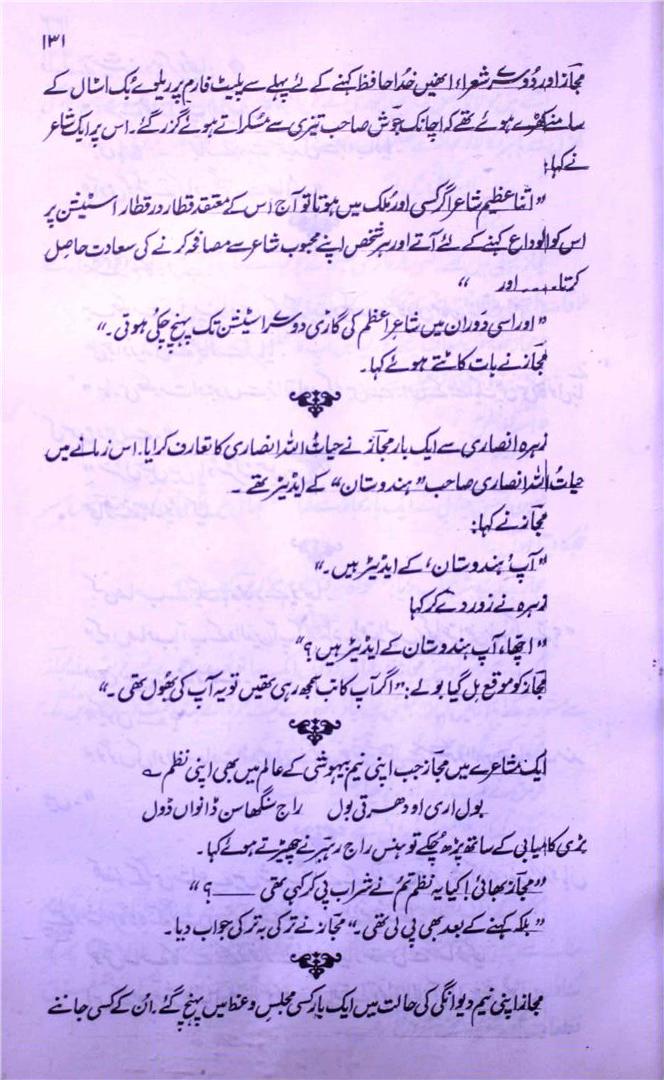 ۱۳۱
مجاز اور دوسرے شعراء انھیں خدا حافظ کہنے کے لئے پہلے سے پلیٹ فارم پر ریلوے بک اسٹال کے
سامنے کھڑے ہوئے تھے کہ اچانک جوش صاحب تیزی سے مسکراتے ہوئے گزر گئے۔ اس پر ایک شاعر
نے کہا:
”اتنا عظیم شاعر اگر کسی اور ملک میں ہوتا تو آج اس کے معتقد قطار در قطار اسٹیشن پر
اس کو الوداع کہنے کے لئے آتے اور ہر شخص اپنے محبوب شاعر سے مصافحہ کرنے کی سعادت حاصل
کرتا۔۔۔۔ اور “
”اور اسی دوران میں شاعرِ اعظم کی گاڑی دوسرے اسٹیشن تک پہنچ چکی ہوتی۔“
مجاز نے بات کاٹتے ہوئے کہا۔
زہرہ انصاری سے ایک بار مجاز نے حیات اللہ انصاری کا تعارف کرایا۔ اس زمانے میں
حیات اللہ انصاری صاحب ”ہندوستان“ کے ایڈیٹر تھے۔
مجاز نے کہا:
”آپ ’ہندوستان‘ کے ایڈیٹر ہیں۔“
زہرہ نے زور دے کر کہا
”اچھا، آپ ہندوستان کے ایڈیٹر ہیں؟“
مجاز کو موقع مل گیا بولے: ”اگر آپ کاتب سمجھ رہی تھیں تو یہ آپ کی بھول تھی۔“
ایک مشاعرے میں مجاز جب اپنی نیم بیہوشی کے عالم میں بھی اپنی نظم ؎
بول اری او دھرتی بول راج سنگھاسن ڈانواں ڈول
بڑی کامیابی کے ساتھ پڑھ چکے تو ہنس راج رہبر نے چھیڑتے ہوئے کہا۔
”مجاز بھائی! کیا یہ نظم تم نے شراب پی کر کہی تھی ۔۔۔؟“
”بلکہ کہنے کے بعد بھی پی لی تھی۔“ مجاز نے ترکی بہ ترکی جواب دیا۔
مجاز اپنی نیم دیوانگی کی حالت میں ایک بار کسی مجلسِ وعظ میں پہنچ گئے۔ اُن کے کسی جاننے